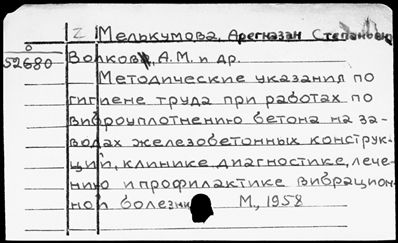 2 Мелькумова, Арегназан Степановн
Волков, А.М. и др.
52680
Методические указания по
гигиене труда при работах по
виброуплотнению бетона на за-
водах железобетонных конструк-
ций, клинике диагностике, лече-
нию и профилактике вибрацион-
ной болезни М., 1958